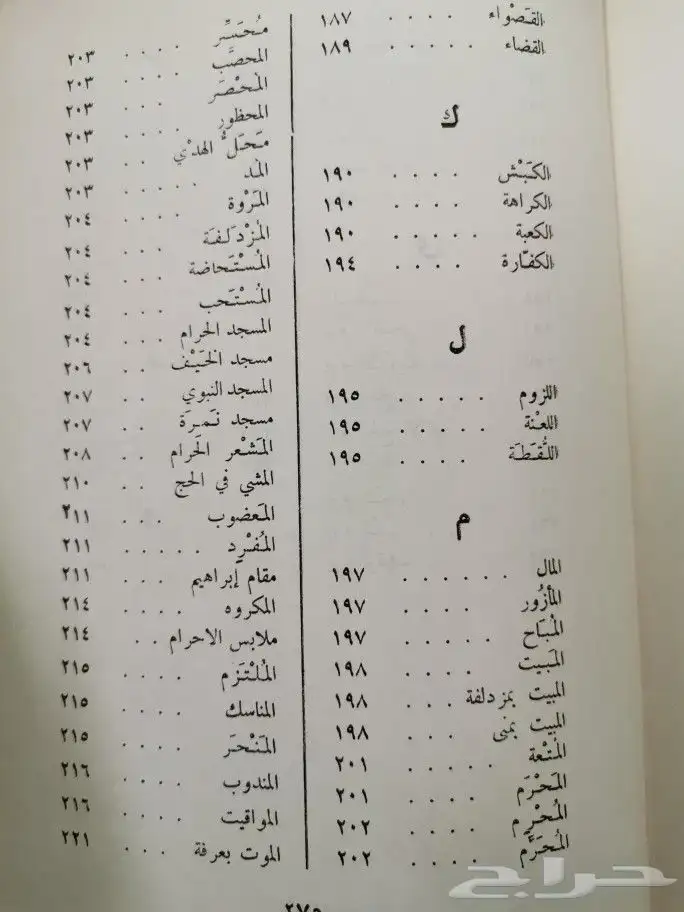 القَصْواء . . . . ١٨٧
القضاء . . . . . ١٨٩
ك
الكَبْش . . . . ١٩٠
الكراهة . . . . ١٩٠
الكعبة . . . . . ١٩٠
الكفّارة . . . . ١٩٤
ل
اللزوم . . . . . ١٩٥
اللعْنة . . . . . ١٩٥
اللُّقَطَة . . . . ١٩٥
م
المال . . . . . . ١٩٧
المأزُور . . . . . ١٩٧
المُبَاح . . . . . ١٩٧
المَبيت . . . . ١٩٨
المبيت بمزدلفة . . . ١٩٨
المبيت بمنى . . . ١٩٨
المُتْعة . . . . . ٢٠١
المَحْرَم . . . . ٢٠١
المُحْرِم . . . . ٢٠٢
المُحَرَّم . . . . ٢٠٢
مُحَسِّر . . . . ٢٠٣
المحصَّب . . . . ٢٠٣
المُحْصَر . . . ٢٠٣
المحظور . . . . ٢٠٣
مَحَلُّ الهدْي . . ٢٠٣
المُد . . . . . ٢٠٣
المَرْوة . . . . ٢٠٤
المُزْدَلفَة . . . ٢٠٤
المُسْتَحاضة . . . ٢٠٤
المُسْتَحب . . . ٢٠٤
المسجد الحرام . . . ٢٠٤
مسجد الخَيْف . . ٢٠٦
المسجد النبوي . . ٢٠٧
مسجد نَمرَة . . . ٢٠٧
المَشْعر الحَرام . . ٢٠٨
المشي في الحج . . ٢١٠
المَعضوب . . . ٢١١
المُفْرِد . . . . . ٢١١
مقام إبراهيم . . . ٢١١
المكروه . . . . ٢١٤
ملابس الاحرام . . ٢١٤
المُلْتَزَم . . . . ٢١٥
المناسك . . . . ٢١٥
المَنْحَر . . . . ٢١٥
المندوب . . . . ٢١٦
المواقيت . . . . ٢١٦
الموت بعرفة . . . ٢٢١
٢٧٥
حراج